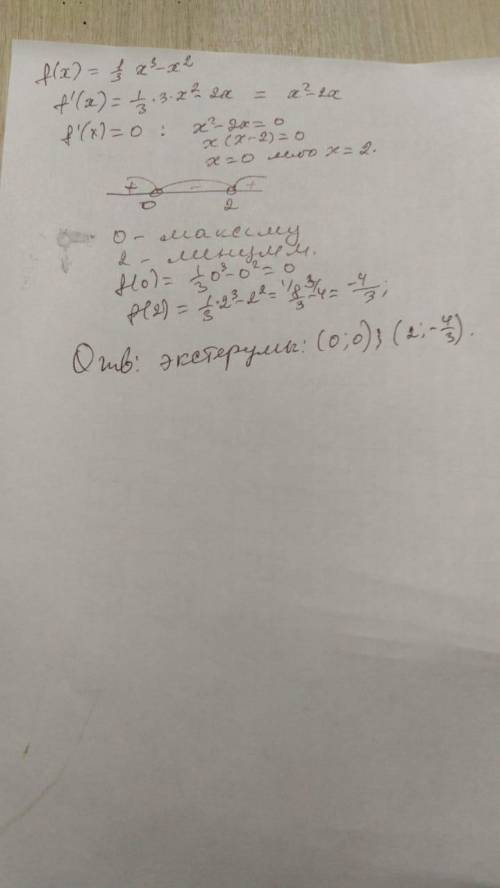 f(x) = 1/3 x³ - x²
f'(x) = 1/3 · 3 · x² - 2x = x² - 2x
f'(x) = 0 : x² - 2x = 0
x (x - 2) = 0
x = 0 либо x = 2.
+ - +
0 2
0 - максиму
2 - минимум.
f(0) = 1/3 0³ - 0² = 0
f(2) = 1/3 · 2³ - 2² = 8/3 - 4 = -4/3 ;
Отв: экстерумы: (0; 0) } (2; -4/3).